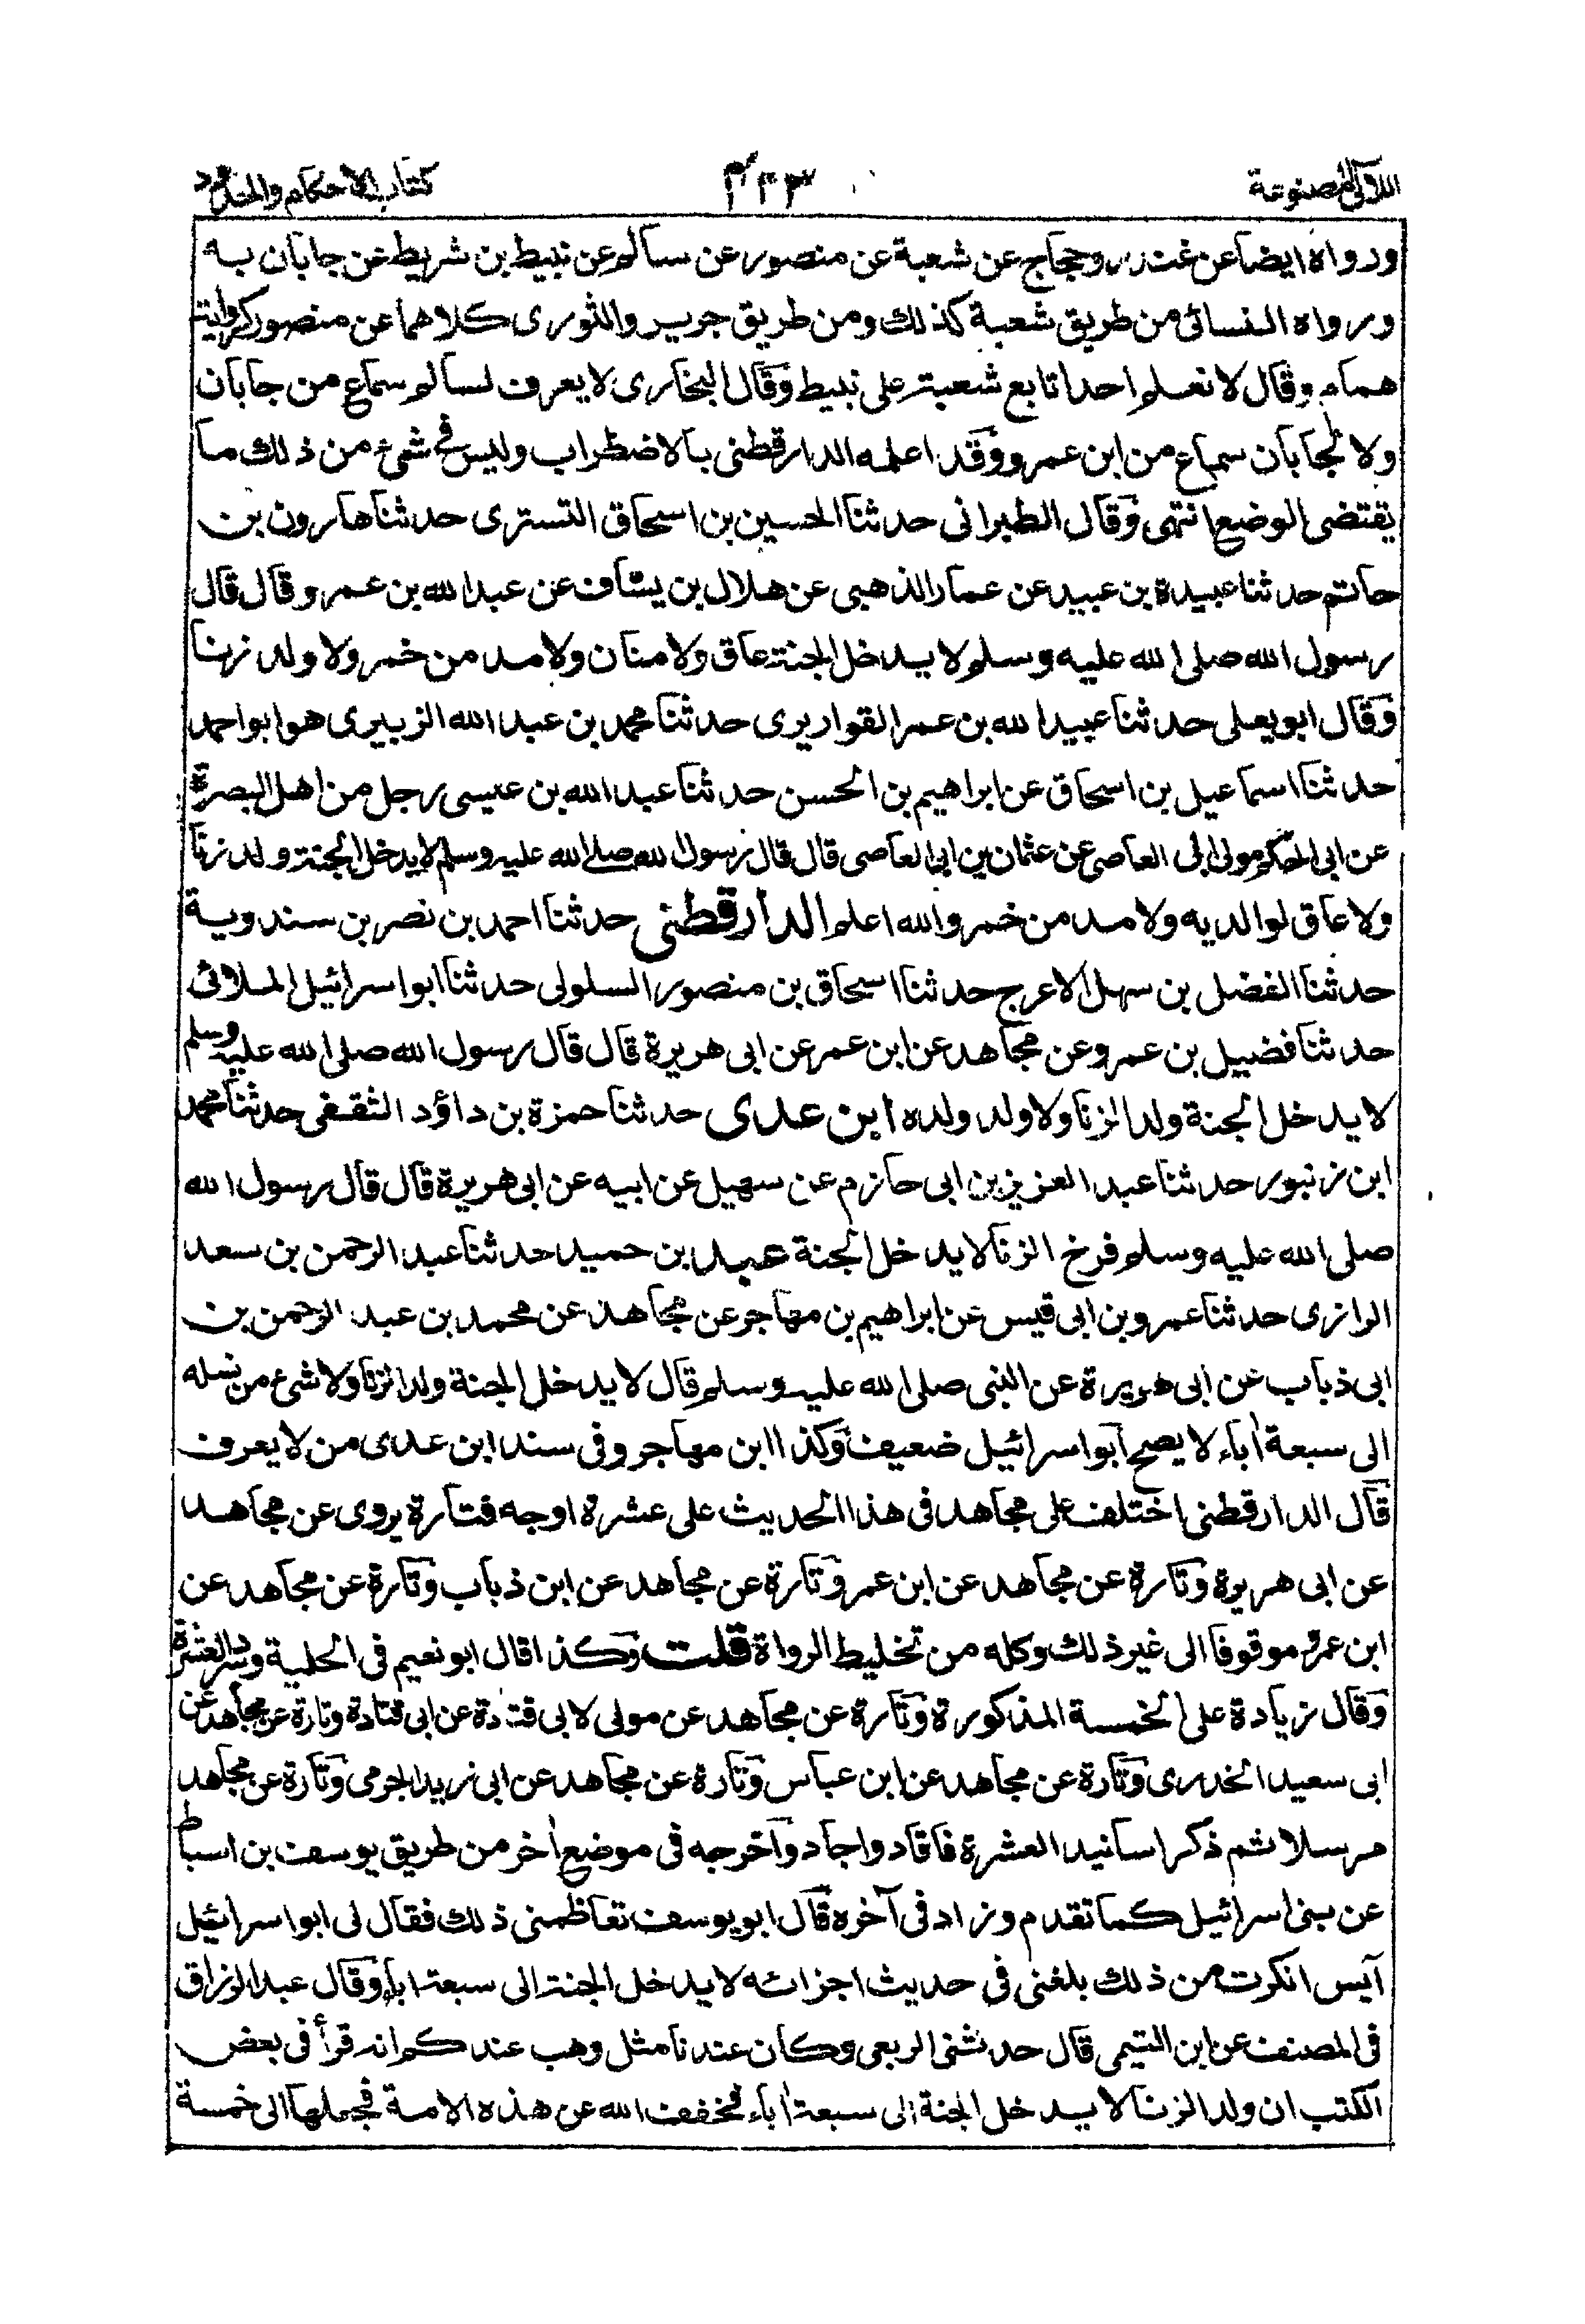 اللآلى المصنوعة
كتاب الاحكام والحدود
ورواه ايضا عن غندر وحجاج عن شعبة عن منصور عن سالم عن نبيط بن شريط عن جابان به
ورواه النسائى من طريق شعبة كذلك ومن طريق جرير والثورى كلاهما عن منصور كرواية
همام وقال لا نعلم احدا تابع شعبة على نبيط وقال البخارى لا يعرف لسالم سماع من جابان
ولا لجابان سماع من ابن عمرو وقد اعله الدارقطنى بالاضطراب وليس فى شئ من ذلك ما
يقتضى الوضع انتهى وقال الطبرانى حدثنا الحسين بن اسحاق التسترى حدثنا هارون بن
حاتم حدثنا عبيدة بن عبيد عن عمار الذهبى عن هلال بن يساف عن عبد الله بن عمر وقال قال
رسول الله صلى الله عليه وسلم لا يدخل الجنة عاق ولا منان ولا مدمن خمر ولا ولد زنا
وقال ابو يعلى حدثنا عبيد الله بن عمر القواريرى حدثنا محمد بن عبد الله الزبيرى هو ابو احمد
حدثنا اسماعيل بن اسحاق عن ابراهيم بن الحسن حدثنا عبد الله بن عيسى رجل من اهل البصرة
عن ابى الحكم مولى ابى العاصى عن عثمان بن ابى العاصى قال قال رسول الله صلى الله عليه وسلم لا يدخل الجنة ولد زنا
ولا عاق لوالديه ولا مدمن خمر والله اعلم الدارقطنى حدثنا احمد بن نصر بن سندوية
حدثنا الفضل بن سهل الاعرج حدثنا اسحاق بن منصور السلولى حدثنا ابو اسرائيل الملائى
حدثنا فضيل بن عمرو عن مجاهد عن ابن عمر عن ابى هريرة قال قال رسول الله صلى الله عليه وسلم
لا يدخل الجنة ولد الزنا ولا ولد ولده ابن عدى حدثنا حمزة بن داؤد الثقفى حدثنا محمد
ابن زنبور حدثنا عبد العزيز بن ابى حازم عن سهيل عن ابيه عن ابى هريرة قال قال رسول الله
صلى الله عليه وسلم فرخ الزنا لا يدخل الجنة عبد بن حميد حدثنا عبد الرحمن بن سعد
الرازى حدثنا عمرو بن ابى قيس عن ابراهيم بن مهاجر عن مجاهد عن محمد بن عبد الرحمن بن
ابى ذباب عن ابى هريرة عن النبى صلى الله عليه وسلم قال لا يدخل الجنة ولد الزنا ولا شئ من نسله
الى سبعة اٰباء لا يصح ابو اسرائيل ضعيف وكذا ابن مهاجر وفى سند ابن عدى من لا يعرف
قال الدارقطنى اختلف على مجاهد فى هذا الحديث على عشرة اوجه فتارة يروى عن مجاهد
عن ابى هريرة وتارة عن مجاهد عن ابن عمر وتارة عن مجاهد عن ابن ذباب وتارة عن مجاهد عن
ابن عمرو موقوفا الى غير ذلك وكله من تخليط الرواة قلت وكذا قال ابو نعيم فى الحلية وسرد العشرة
وقال زيادة على الخمسة المذكورة وتارة عن مجاهد عن مولى لابى قتادة عن ابى قتادة وتارة عن مجاهد عن
ابى سعيد الخدرى وتارة عن مجاهد عن ابن عباس وتارة عن مجاهد عن ابى زيد الجرمى وتارة عن مجاهد
مرسلا ثم ذكر اسانيد العشرة فافاد واجاد واخرجه فى موضع اٰخر من طريق يوسف بن اسباط
عن بنى اسرائيل كما تقدم وزاد فى آخره قال ابو يوسف تعاظمنى ذلك فقال لى ابو اسرائيل
آيس انكرت من ذلك بلغنى فى حديث اجزائه لا يدخل الجنة الى سبعة اٰباء وقال عبد الرزاق
فى المصنف عن ابن التيمى قال حدثنى الربعى وكان عندنا مثل وهب عندكم انه قرأ فى بعض
الكتب ان ولد الزنا لا يدخل الجنة الى سبعة اٰباء فخفف الله عن هذه الامة فجعلها الى خمسة